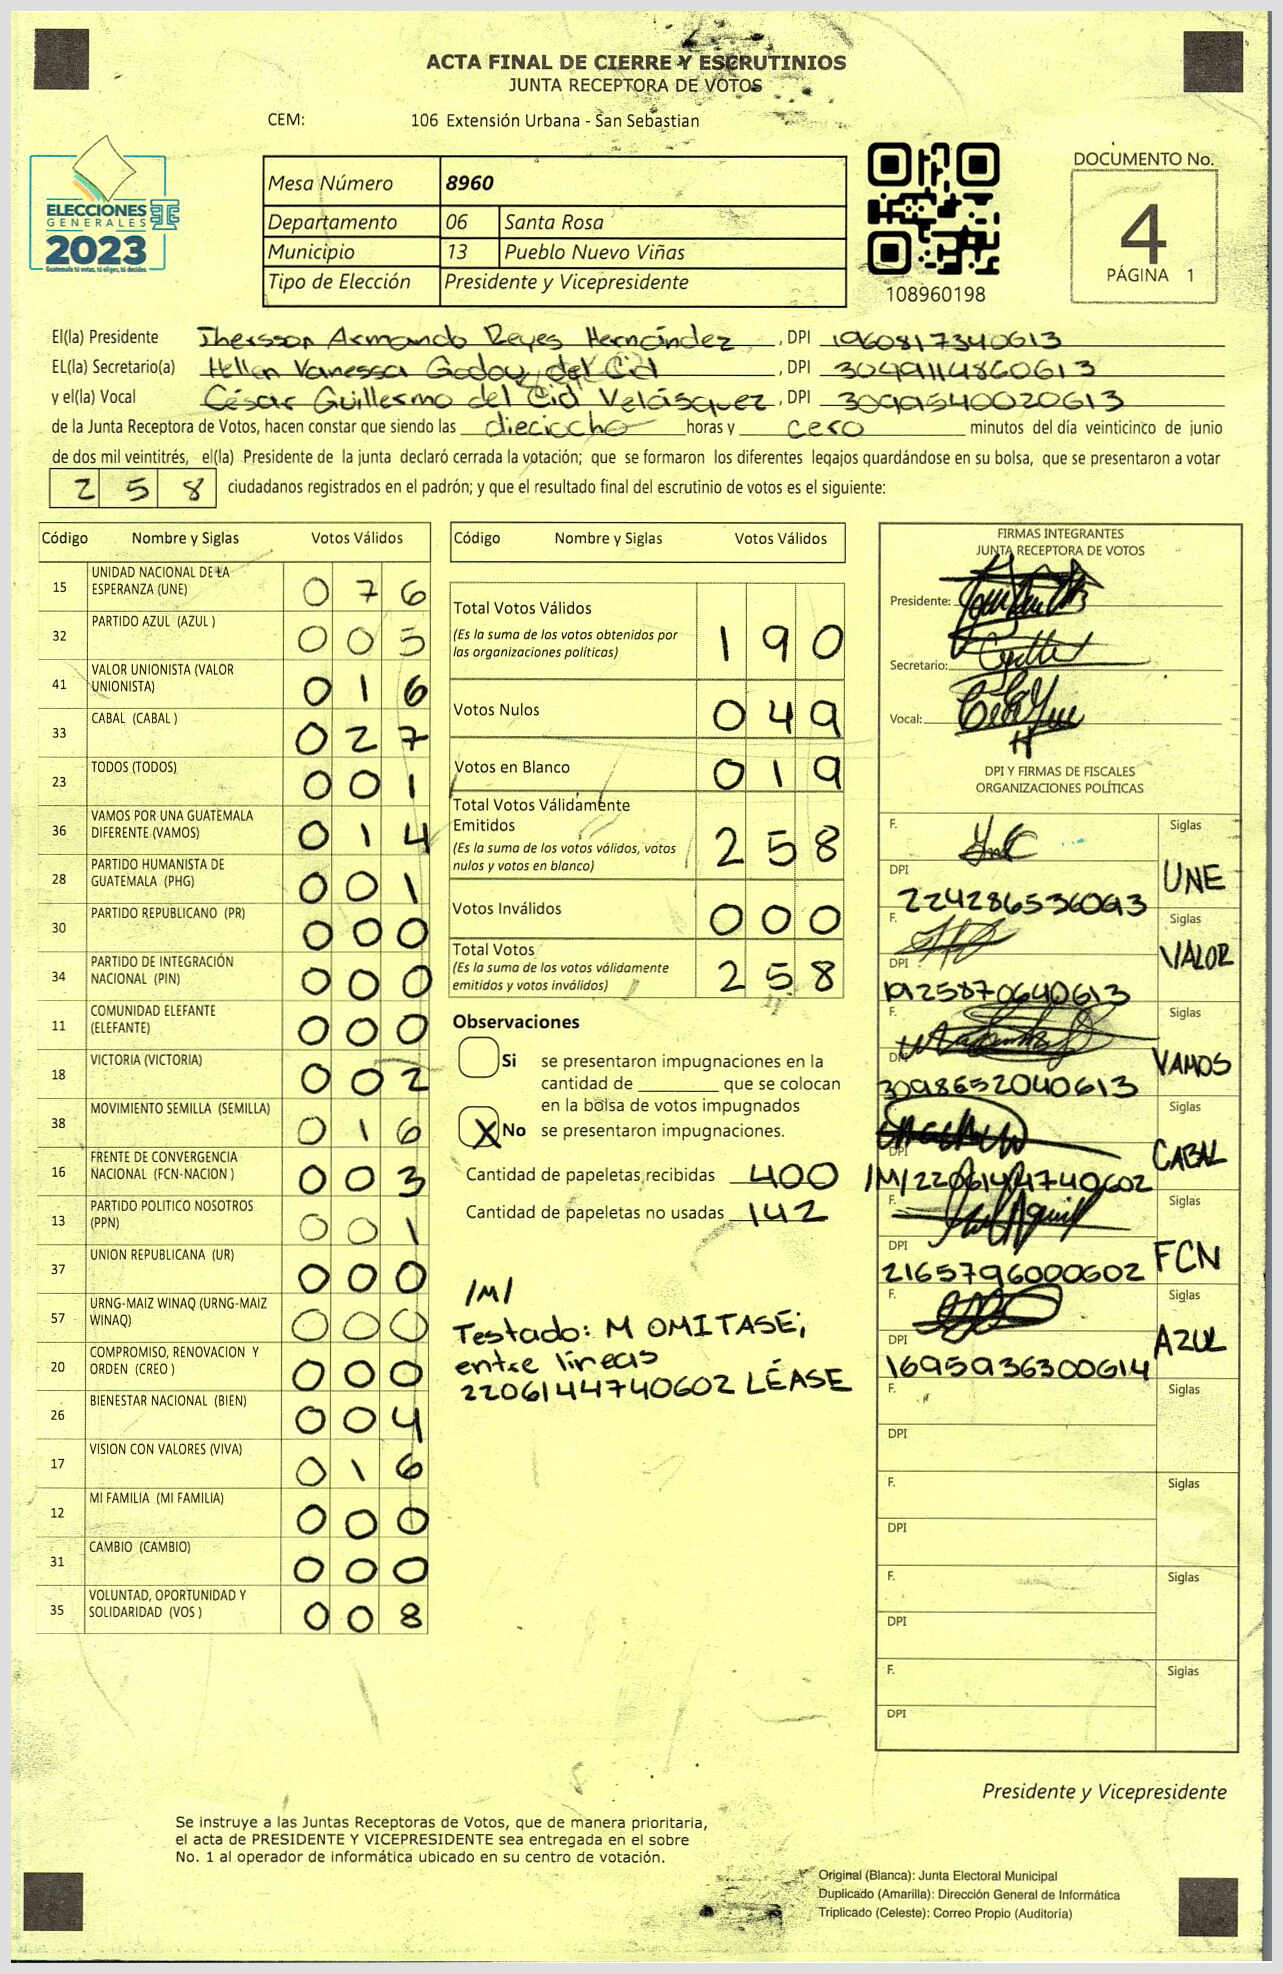 ACTA FINAL DE CIERRE Y ESCRUTINIOS
JUNTA RECEPTORA DE VOTOS
CEM: 106 Extensión Urbana - San Sebastian
ELECCIONES
GENERALES
2023
Guatemala tú votas, tú eliges, tú decides
Mesa Número 8960
Departamento 06 Santa Rosa
Municipio 13 Pueblo Nuevo Viñas
Tipo de Elección Presidente y Vicepresidente
108960198
DOCUMENTO No.
4
PÁGINA 1
El(la) Presidente Jhersson Armando Reyes Hernández, DPI 1960817340613
EL(la) Secretario(a) Hellen Vanessa Godoy del Cid, DPI 3049114860613
y el(la) Vocal César Guillermo del Cid Velásquez, DPI 3099540020613
de la Junta Receptora de Votos, hacen constar que siendo las dieciocho horas y cero minutos del día veinticinco de junio
de dos mil veintitrés, el(la) Presidente de la junta declaró cerrada la votación; que se formaron los diferentes legajos quardándose en su bolsa, que se presentaron a votar
258 ciudadanos registrados en el padrón; y que el resultado final del escrutinio de votos es el siguiente:
Código Nombre y Siglas Votos Válidos
15 UNIDAD NACIONAL DE LA
ESPERANZA (UNE) 076
32 PARTIDO AZUL (AZUL ) 005
41 VALOR UNIONISTA (VALOR
UNIONISTA) 016
33 CABAL (CABAL ) 027
23 TODOS (TODOS) 001
36 VAMOS POR UNA GUATEMALA
DIFERENTE (VAMOS) 014
28 PARTIDO HUMANISTA DE
GUATEMALA (PHG) 001
30 PARTIDO REPUBLICANO (PR) 000
34 PARTIDO DE INTEGRACIÓN
NACIONAL (PIN) 000
11 COMUNIDAD ELEFANTE
(ELEFANTE) 000
18 VICTORIA (VICTORIA) 002
38 MOVIMIENTO SEMILLA (SEMILLA) 016
16 FRENTE DE CONVERGENCIA
NACIONAL (FCN-NACION ) 003
13 PARTIDO POLITICO NOSOTROS
(PPN) 001
37 UNION REPUBLICANA (UR) 000
57 URNG-MAIZ WINAQ (URNG-MAIZ
WINAQ) 000
20 COMPROMISO, RENOVACION Y
ORDEN (CREO ) 000
26 BIENESTAR NACIONAL (BIEN) 004
17 VISION CON VALORES (VIVA) 016
12 MI FAMILIA (MI FAMILIA) 000
31 CAMBIO (CAMBIO) 000
35 VOLUNTAD, OPORTUNIDAD Y
SOLIDARIDAD (VOS ) 008
Código Nombre y Siglas Votos Válidos
Total Votos Válidos
(Es la suma de los votos obtenidos por
las organizaciones políticas) 190
Votos Nulos 049
Votos en Blanco 019
Total Votos Válidamente
Emitidos
(Es la suma de los votos válidos, votos
nulos y votos en blanco) 258
Votos Inválidos 000
Total Votos
(Es la suma de los votos válidamente
emitidos y votos inválidos) 258
Observaciones
Si se presentaron impugnaciones en la
cantidad de ________ que se colocan
en la bolsa de votos impugnados
X No se presentaron impugnaciones.
Cantidad de papeletas recibidas 400
Cantidad de papeletas no usadas 142
/M/
Testado: M OMITASE;
entre líneas
2206144740602 LÉASE
FIRMAS INTEGRANTES
JUNTA RECEPTORA DE VOTOS
Presidente:
Secretario:
Vocal:
DPI Y FIRMAS DE FISCALES
ORGANIZACIONES POLÍTICAS
F. Siglas
DPI UNE
2242865360613
F. Siglas
DPI VALOR
1925870640613
F. Siglas
DPI VAMOS
3098652040613
Siglas
DPI CABAL
/M/2206144740602
F. Siglas
DPI FCN
2165796000602
F. Siglas
DPI AZUL
1695936300614
F. Siglas
DPI
F. Siglas
DPI
F. Siglas
DPI
F. Siglas
DPI
Presidente y Vicepresidente
Se instruye a las Juntas Receptoras de Votos, que de manera prioritaria,
el acta de PRESIDENTE Y VICEPRESIDENTE sea entregada en el sobre
No. 1 al operador de informática ubicado en su centro de votación.
Original (Blanca): Junta Electoral Municipal
Duplicado (Amarilla): Dirección General de Informática
Triplicado (Celeste): Correo Propio (Auditoría)